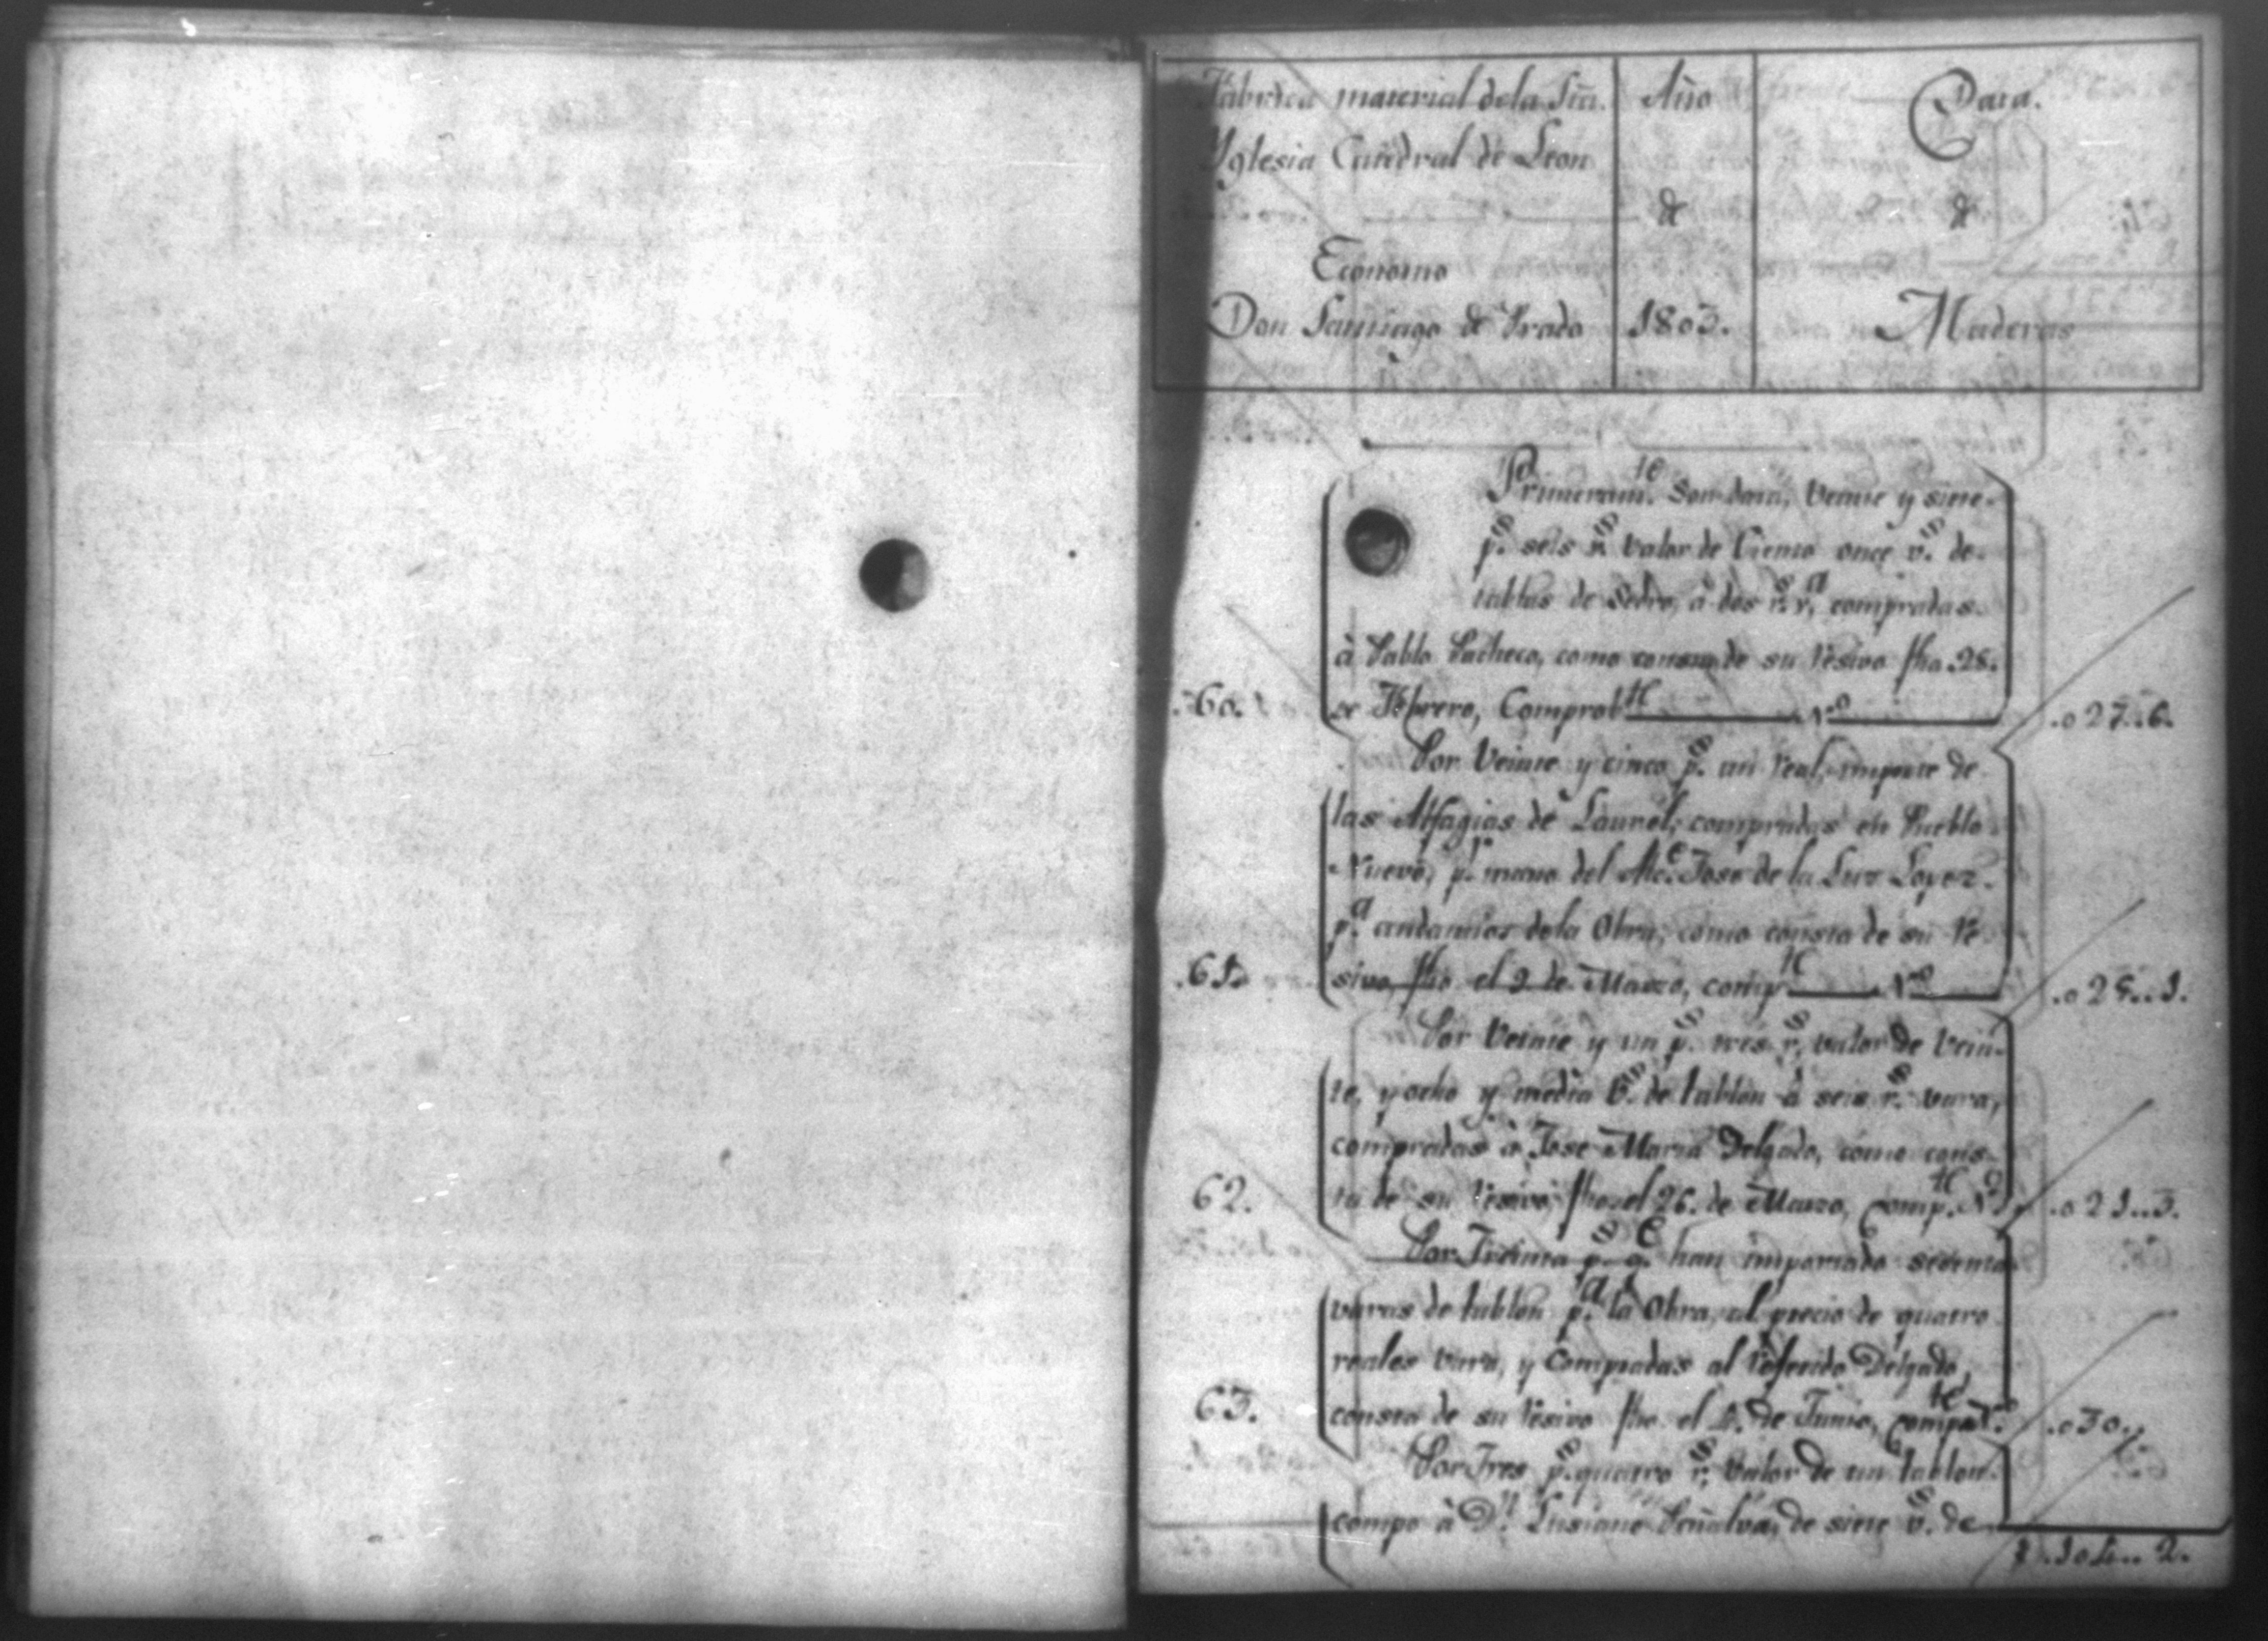 Fabrica material dela Sta. Año Data.
Yglesia Catedral de Leon
de de
Economo
Don Santiago de Prado 1803. Maderas
Primeramte. Son data, veinte y siete
ps. seis rs. valor de Ciento once vs. de
tablas de Sedro, à dos rs. va. compradas
à Pablo Pacheco, como consta de su resivo fho. 28.
.60. de Febrero, Comprobte .. 1.o .o27..6.
Por Veinte y cinco ps. un real, importe de
las Alfagias de Laurel, compradas en Pueblo
Nuevo, pr. mano del Ale. Jose de la Luz Lopez.
pa. andamios dela Obra, como consta de su re
.61. sivo, fho. el 9 de Marzo, compte .o25..1.
Por Veinte y un ps. tres rs. valor de Vein
te, y ocho y media vs. de tablon à seis rs. vara,
compradas à Jose Maria Delgado, como cons
62. ta de su resivo, fho. el 26. de Marzo, compte. .o21..3.
Por Treinta ps. qe. han importado sesenta
varas de tablon pa. la Obra, al precio de quatro
reales vara, y Compradas al referido Delgado,
63. consta de su resivo fho. el de Junio, .o30..
Por Tres ps. quatro rs. valor de un tablon
compo à Dn. Lusiano de siete vs. de
104.. 2.